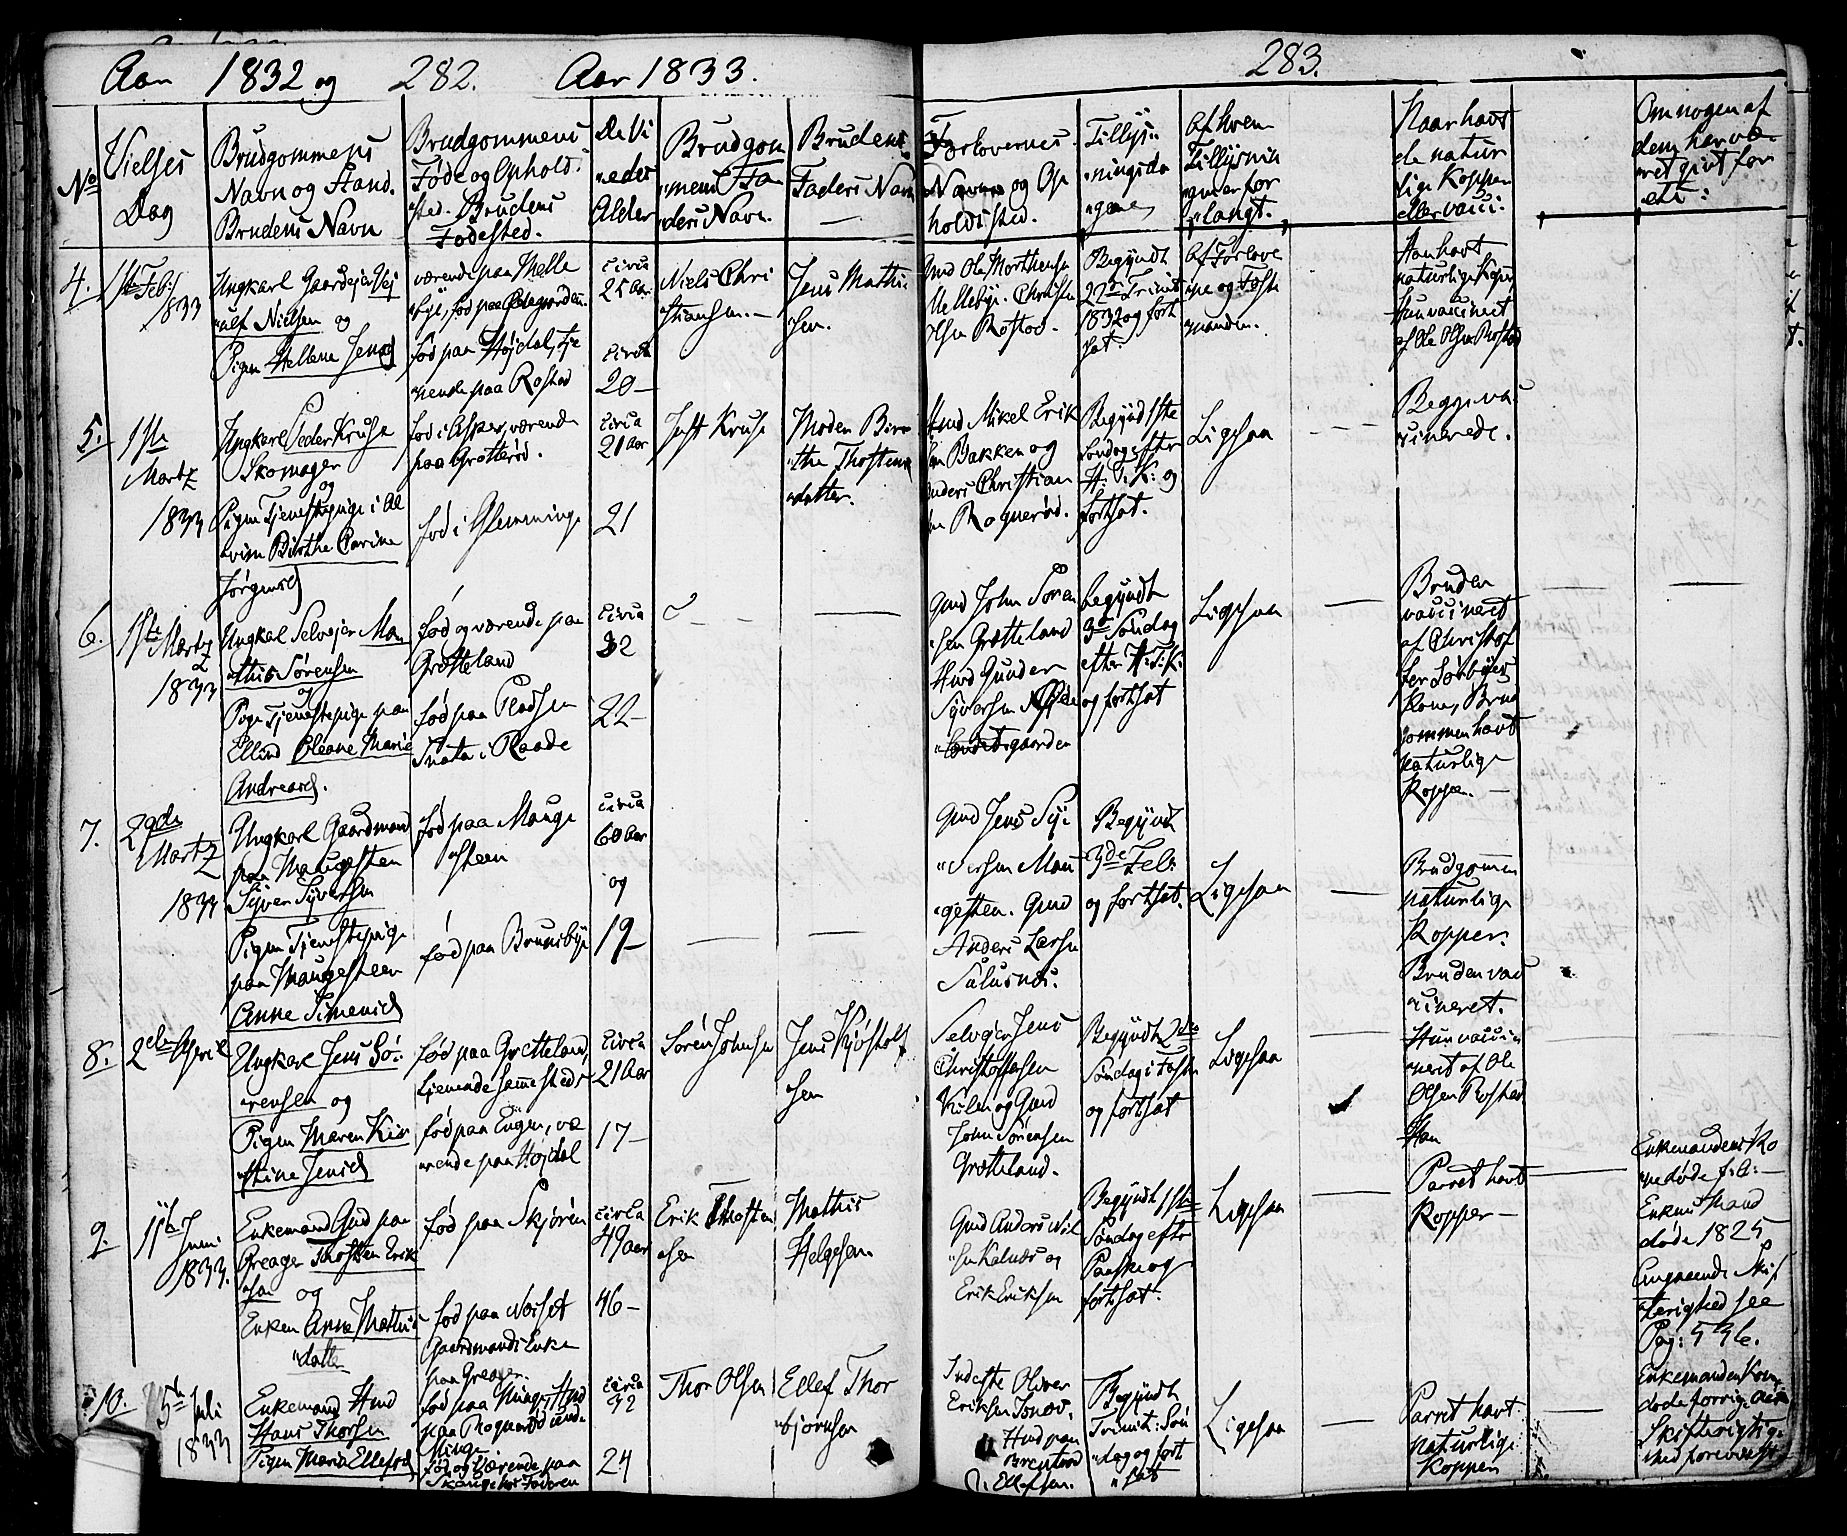 Aar 1832 og 282. Aar 1833.
283.
No
Vielses
Dag
Brudgommens
Navn og Stand.
Brudens Navn
Brudgommens
Føde og Ophold.
sted. Brudens
Fødested.
De Vi
edes
Alder
Brudgom
mens Fa
ders Navn.
Brudens
Faders Navn
Forlovernes
Navne og Op
holdssted.
Tillys
ningsda
gene
Af hvem
Tillysnin
gen er for
langt.
Naar havt
de natur
lige Kopper
eller vacci
Om nogen af
dem har væ
ret givt for
4.
1ste Feb:
1833
Ungkarl Gaardejer
Nielsen og
Pigen Hellene Jensd
værende paa Melle
bye, født paa
fød paa Højdal, tje
nende paa Rostad
circa
25 Aar
circa
20 –
Niels Chri
stiansen. –
Jens Mathi
sen.
Gmd Ole Morthensen
Mellebye. Christen
Olsen Rostad.
Begyndt
22de Trinit
1832 og fort
sat.
Af Forlove
rne og Præste
manden.
Han havt
naturlige Kopper
Hun vaccineret
af Ole Olsen Rostad
5.
1ste
Martz
1833
Ungkarl Peder Kruse
Skomager
og
Pigen Tjenestepige i Al
vim Birthe Carine
Jørgensd
fød i Asper, værende
paa Grøtterød.
fød i Glemminge
circa
21 Aar
21
Just Kruse
Moderen Bir
the Thostens
datter.
Hmd Mikel Erik
sen Bakken og
Anders Christian
sen Rognerød.
Begyndt 1ste
Søndag efter
H. 3. K: og
fortsat.
Ligesaa
Begge va
cinerede.
6.
1ste Martz
1833
Ungkarl Selvejer Ma
this Sørensen
og
Pigen Tjenestepige paa
Ellind Oleane Marie
Andreasd.
fød og værende paa
Grøtteland
fød paa Pladsen
Snata i Raade
circa
32
22 –
Gmd John Søren
sen Grøtteland
Hmd Gunder
Syversen
gaarden
begyndt
3de Søndag
efter H. 3. K.
og fortsat
Ligesaa
Bruden
vaccineret
af Christof
fer Sørbyes
Kone, Brud
gommen havt
naturlige
Kopper. –
7.
29de
Martz
1833
Ungkarl Gaardmand
paa Maugesten
Syver Syversen
Pigen Tjenestepige
paa Maugesteen
Anne Simensd
fød paa Mauge
steen
fød paa Brunsbye
circa
60 Aar
og
19 –
Gmd Jens Sy
versen Mau
gesten. Gmd
Anders Larsen
Saltnæs.
Begyndt
3de Feb:
og fortsat.
Ligesaa
Brudgommen
naturlige
Kopper.
Bruden vac
cineret.
8.
2den April
Ungkarl Jens Sø
rensen og
Pigen Maren Kir
stine Jensd
fød paa Grøtteland,
tjenende sammesteds
fød paa Engen, væ
rende paa Højdal
circa
21 Aar
17 –
Søren Johnsen
Jens Kjøstolf
sen
Selvejer Jens
Christoffersen
Kilen og Gmd
John Sørensen
Grøtteland.
Begyndt 2den
Søndag i Faste
og fortsat
Ligesaa
Hun vacci
neret af Ole
Olsen Rostad
Han
9.
11te Juni
1833.
Enkemand Gmd paa
Greager Thosten Erik
sen og
Enken Anne Mathis
datter
fød paa Skjøren
fød paa Noiset
Gaardmands Enke
paa Greager.
circa
49 aar
46 –
Erik Thosten
sen
Mathis
Helgesen
Gmd Anders Niel
sen Kalnæs og
Erik Eriksen
Begyndt 1ste
Søndag efter
Paaske og
fortsat.
Ligesaa
Parret havt
Kopper –
Enkemandens Ko
ne døde f: A: –
Enkens Mand
døde 1825
Angaaende Skif
terighed see
Pag: 536.
10.
5te Juli
1833
Enkemand Hmd
Hans Thorsen
Pigen Maria Ellefsd
fød paa Minge, Hmd
paa Rognerød under
Minge
fød og værende paa
hos Faderen
circa
32
24
Thor Olsen
Ellef Thor
bjørnsen
Inderste Oliver
Eriksen
Hmd paa
Brenterød
O: Ellefsen.
Begyndt
Trinit: Søn
dag og fort
sat
Ligesaa
Parret havt
naturlige
Kopper
Enkemandens Kone
døde forrige Aar
Skifterigtig
hed forevist